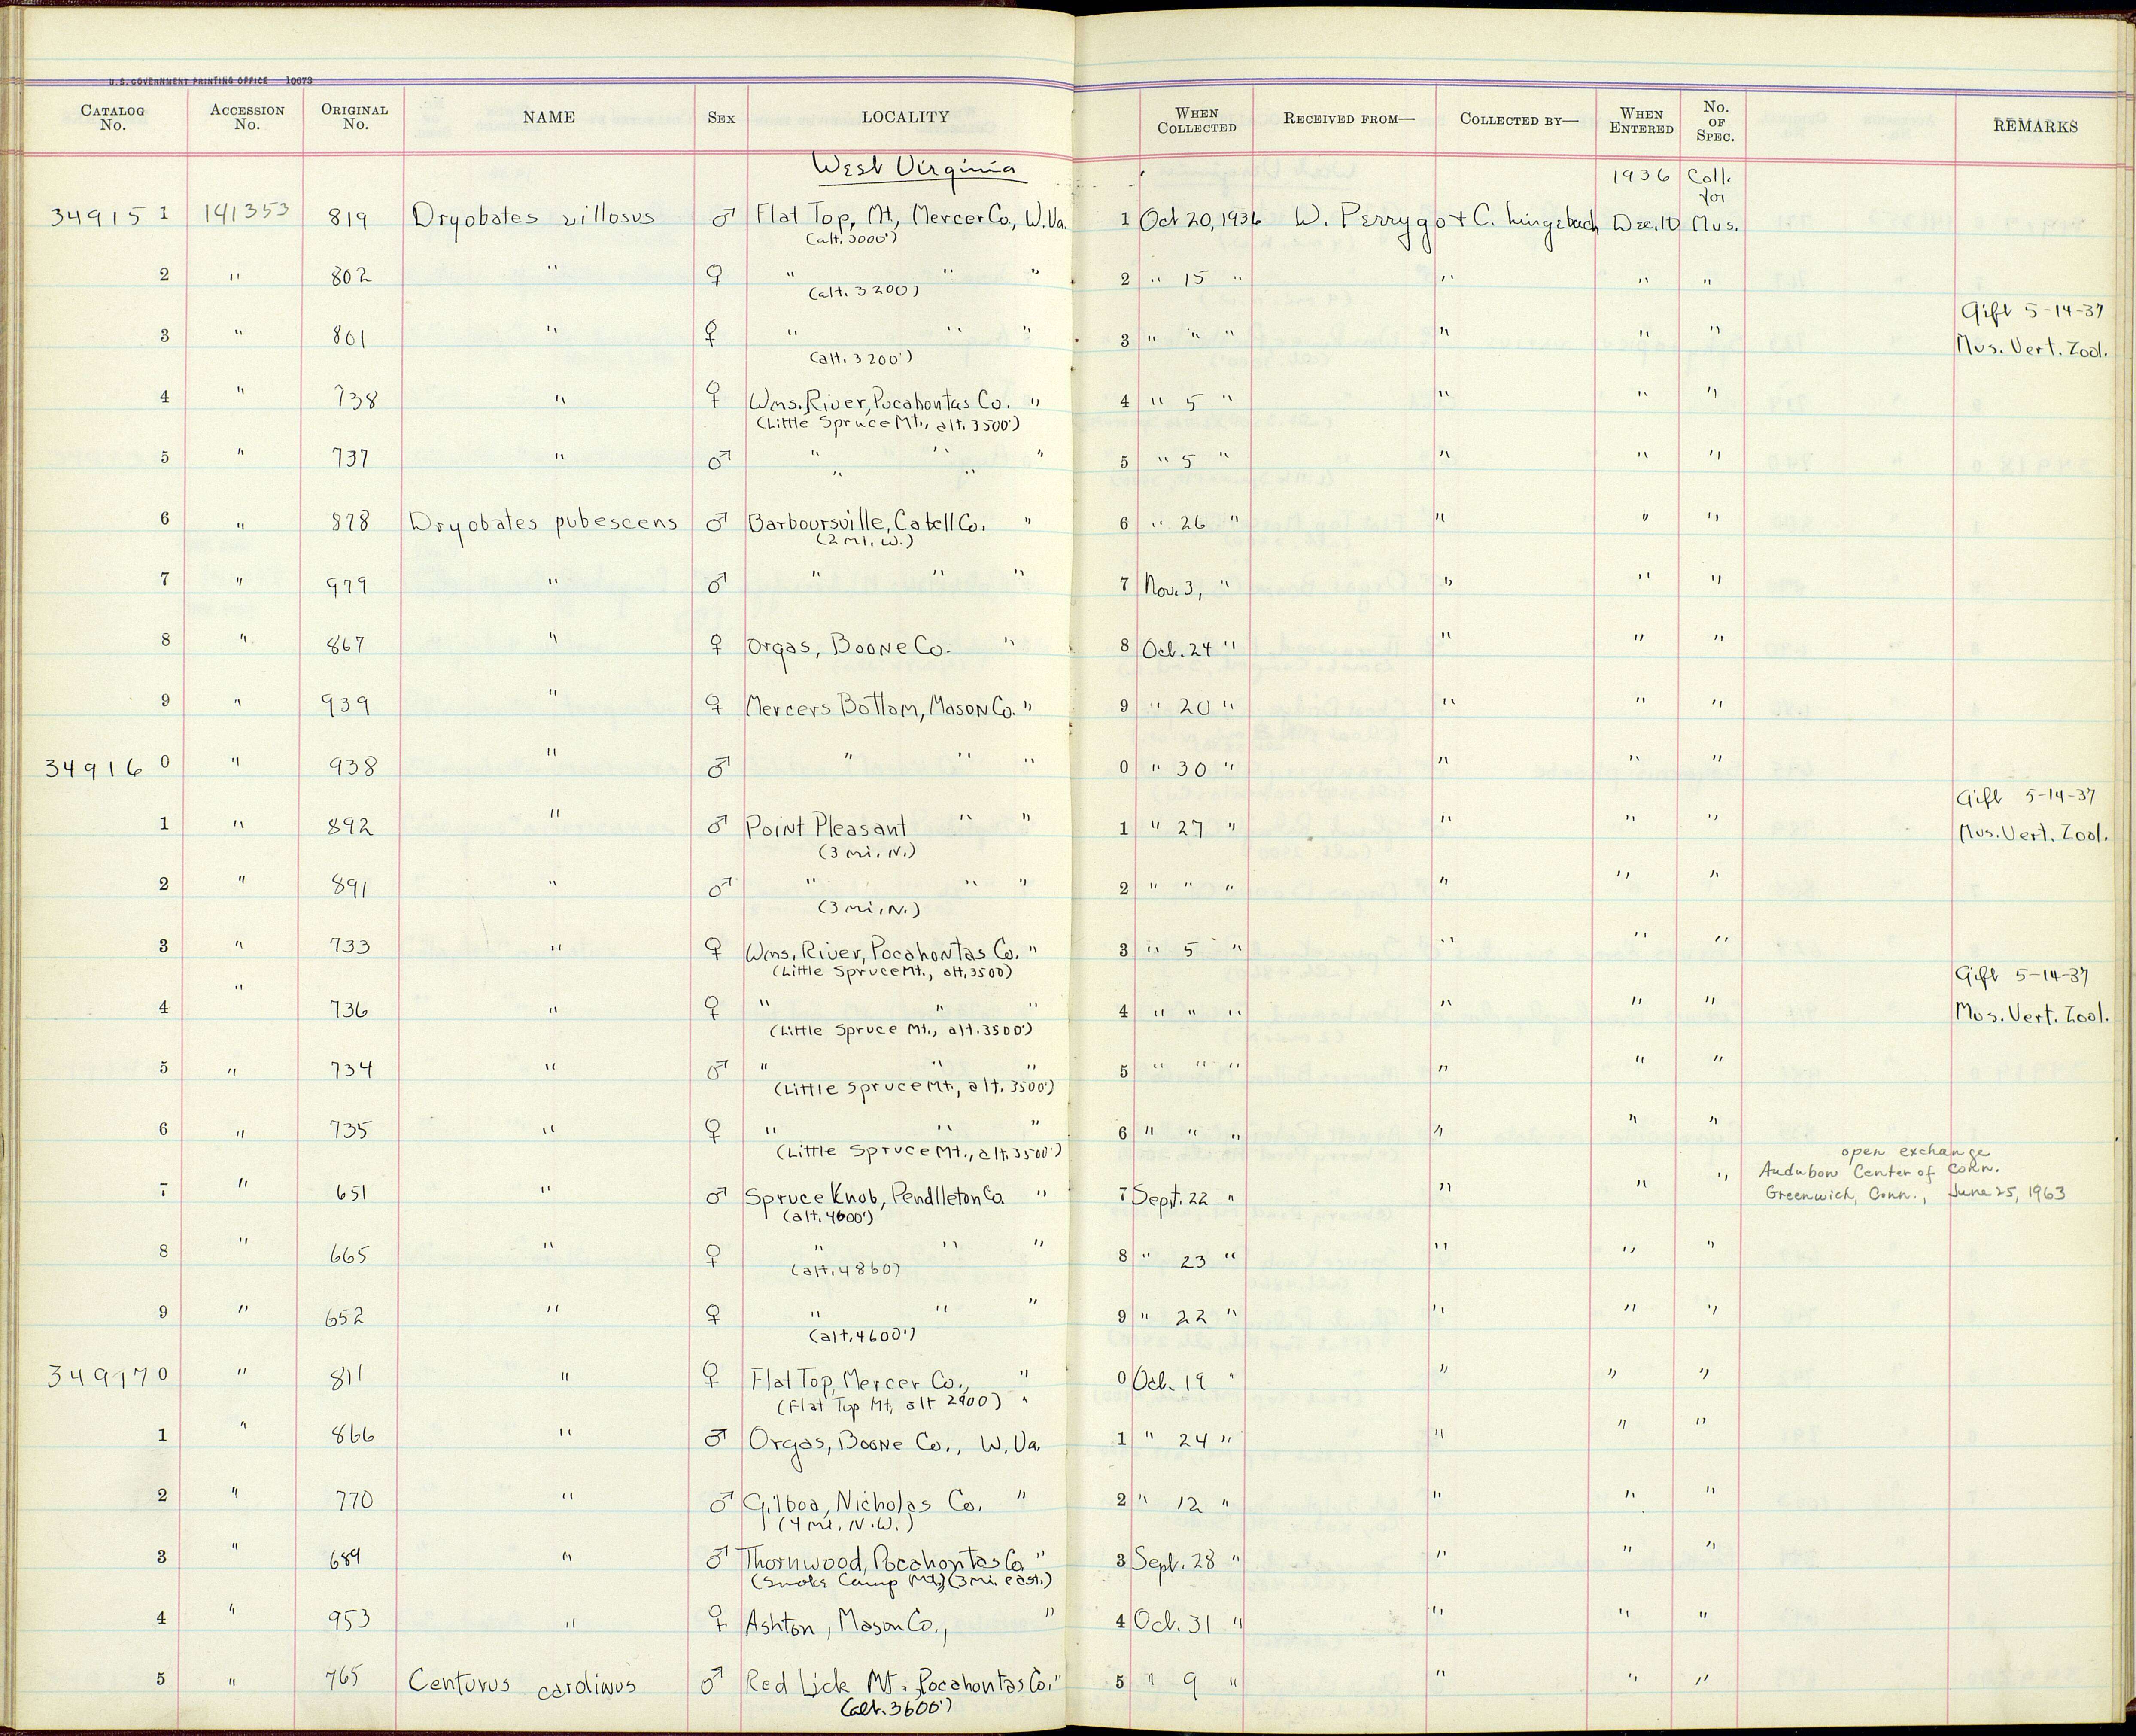 U.S. GOVERNMENT PRINTING OFFICE 10673
CATALOG No. ACCESSION No. ORIGINAL No. NAME SEX LOCALITY WHEN COLLECTED RECEIVED FROM— COLLECTED BY— WHEN ENTERED No. OF SPEC. REMARKS
West Virginia 1936 Coll. for
34915 1 141353 819 Dryobates villosus ♂ Flat Top, Mt, Mercer Co., W.Va. 1 Oct 20, 1936 W. Perrygo + C. Lingebach Dec. 10 Mus.
(alt. 3000')
2 " 802 " ♀ " " " 2 " 15 " " " "
(alt. 3200)
Gift 5-14-37
3 " 801 " ♀ " " " 3 " " " " " " Mus. Vert. Zool.
(alt. 3200')
4 " 738 " ♀ Wms. River, Pocahontas Co. " 4 " 5 " " " "
(Little Spruce Mt., alt. 3500')
5 " 737 " ♂ " " " 5 " 5 " " " "
" "
6 " 878 Dryobates pubescens ♂ Barboursville, Cabell Co. " 6 " 26 " " " "
(2 mi. W.)
7 " 979 " ♂ " " " 7 Nov. 3, " " " "
8 " 867 " ♀ Orgas, Boone Co. " 8 Oct. 24 " " " "
9 " 939 " ♀ Mercers Bottom, Mason Co. " 9 " 20 " " " "
34916 0 " 938 " ♂ " " " 0 " 30 " " " "
Gift 5-14-37
1 " 892 " ♂ Point Pleasant " " 1 " 27 " " " " Mus. Vert. Zool.
(3 mi. N.)
2 " 891 " ♂ " " " 2 " " " " " "
(3 mi. N.)
3 " 733 " ♀ Wms. River, Pocahontas Co. " 3 " 5 " " " "
(Little Spruce Mt., alt. 3500)
Gift 5-14-37
4 " 736 " ♀ " " " 4 " " " " " " Mus. Vert. Zool.
(Little Spruce Mt., alt. 3500')
5 " 734 " ♂ " " " 5 " " " " " "
(Little Spruce Mt., alt. 3500')
6 " 735 " ♀ " " " 6 " " " " " "
(Little Spruce Mt., alt. 3500')
open exchange
Audubon Center of Conn.
7 " 651 " ♂ Spruce Knob, Pendlleton Co " 7 Sept. 22 " " " " Greenwich, Conn., June 25, 1963
(alt. 4600')
8 " 665 " ♀ " " " 8 " 23 " " " "
(alt. 4860)
9 " 652 " ♀ " " " 9 " 22 " " " "
(alt. 4600')
34917 0 " 811 " ♀ Flat Top, Mercer Co., " 0 Oct. 19 " " " "
(Flat Top Mt, alt 2900) "
1 " 866 " ♂ Orgas, Boone Co., W. Va. 1 " 24 " " " "
2 " 770 " ♂ Gilboa, Nicholas Co. " 2 " 12 " " " "
(4 mi. N.W.)
3 " 689 " ♂ Thornwood, Pocahontas Co " 3 Sept. 28 " " " "
(Smoke Camp Mt.) (3 mi. east.)
4 " 953 " ♀ Ashton, Mason Co., " 4 Oct. 31 " " " "
5 " 765 Centurus carolinus ♂ Red Lick Mt., Pocahontas Co. " 5 " 9 " " " "
(alt. 3600')